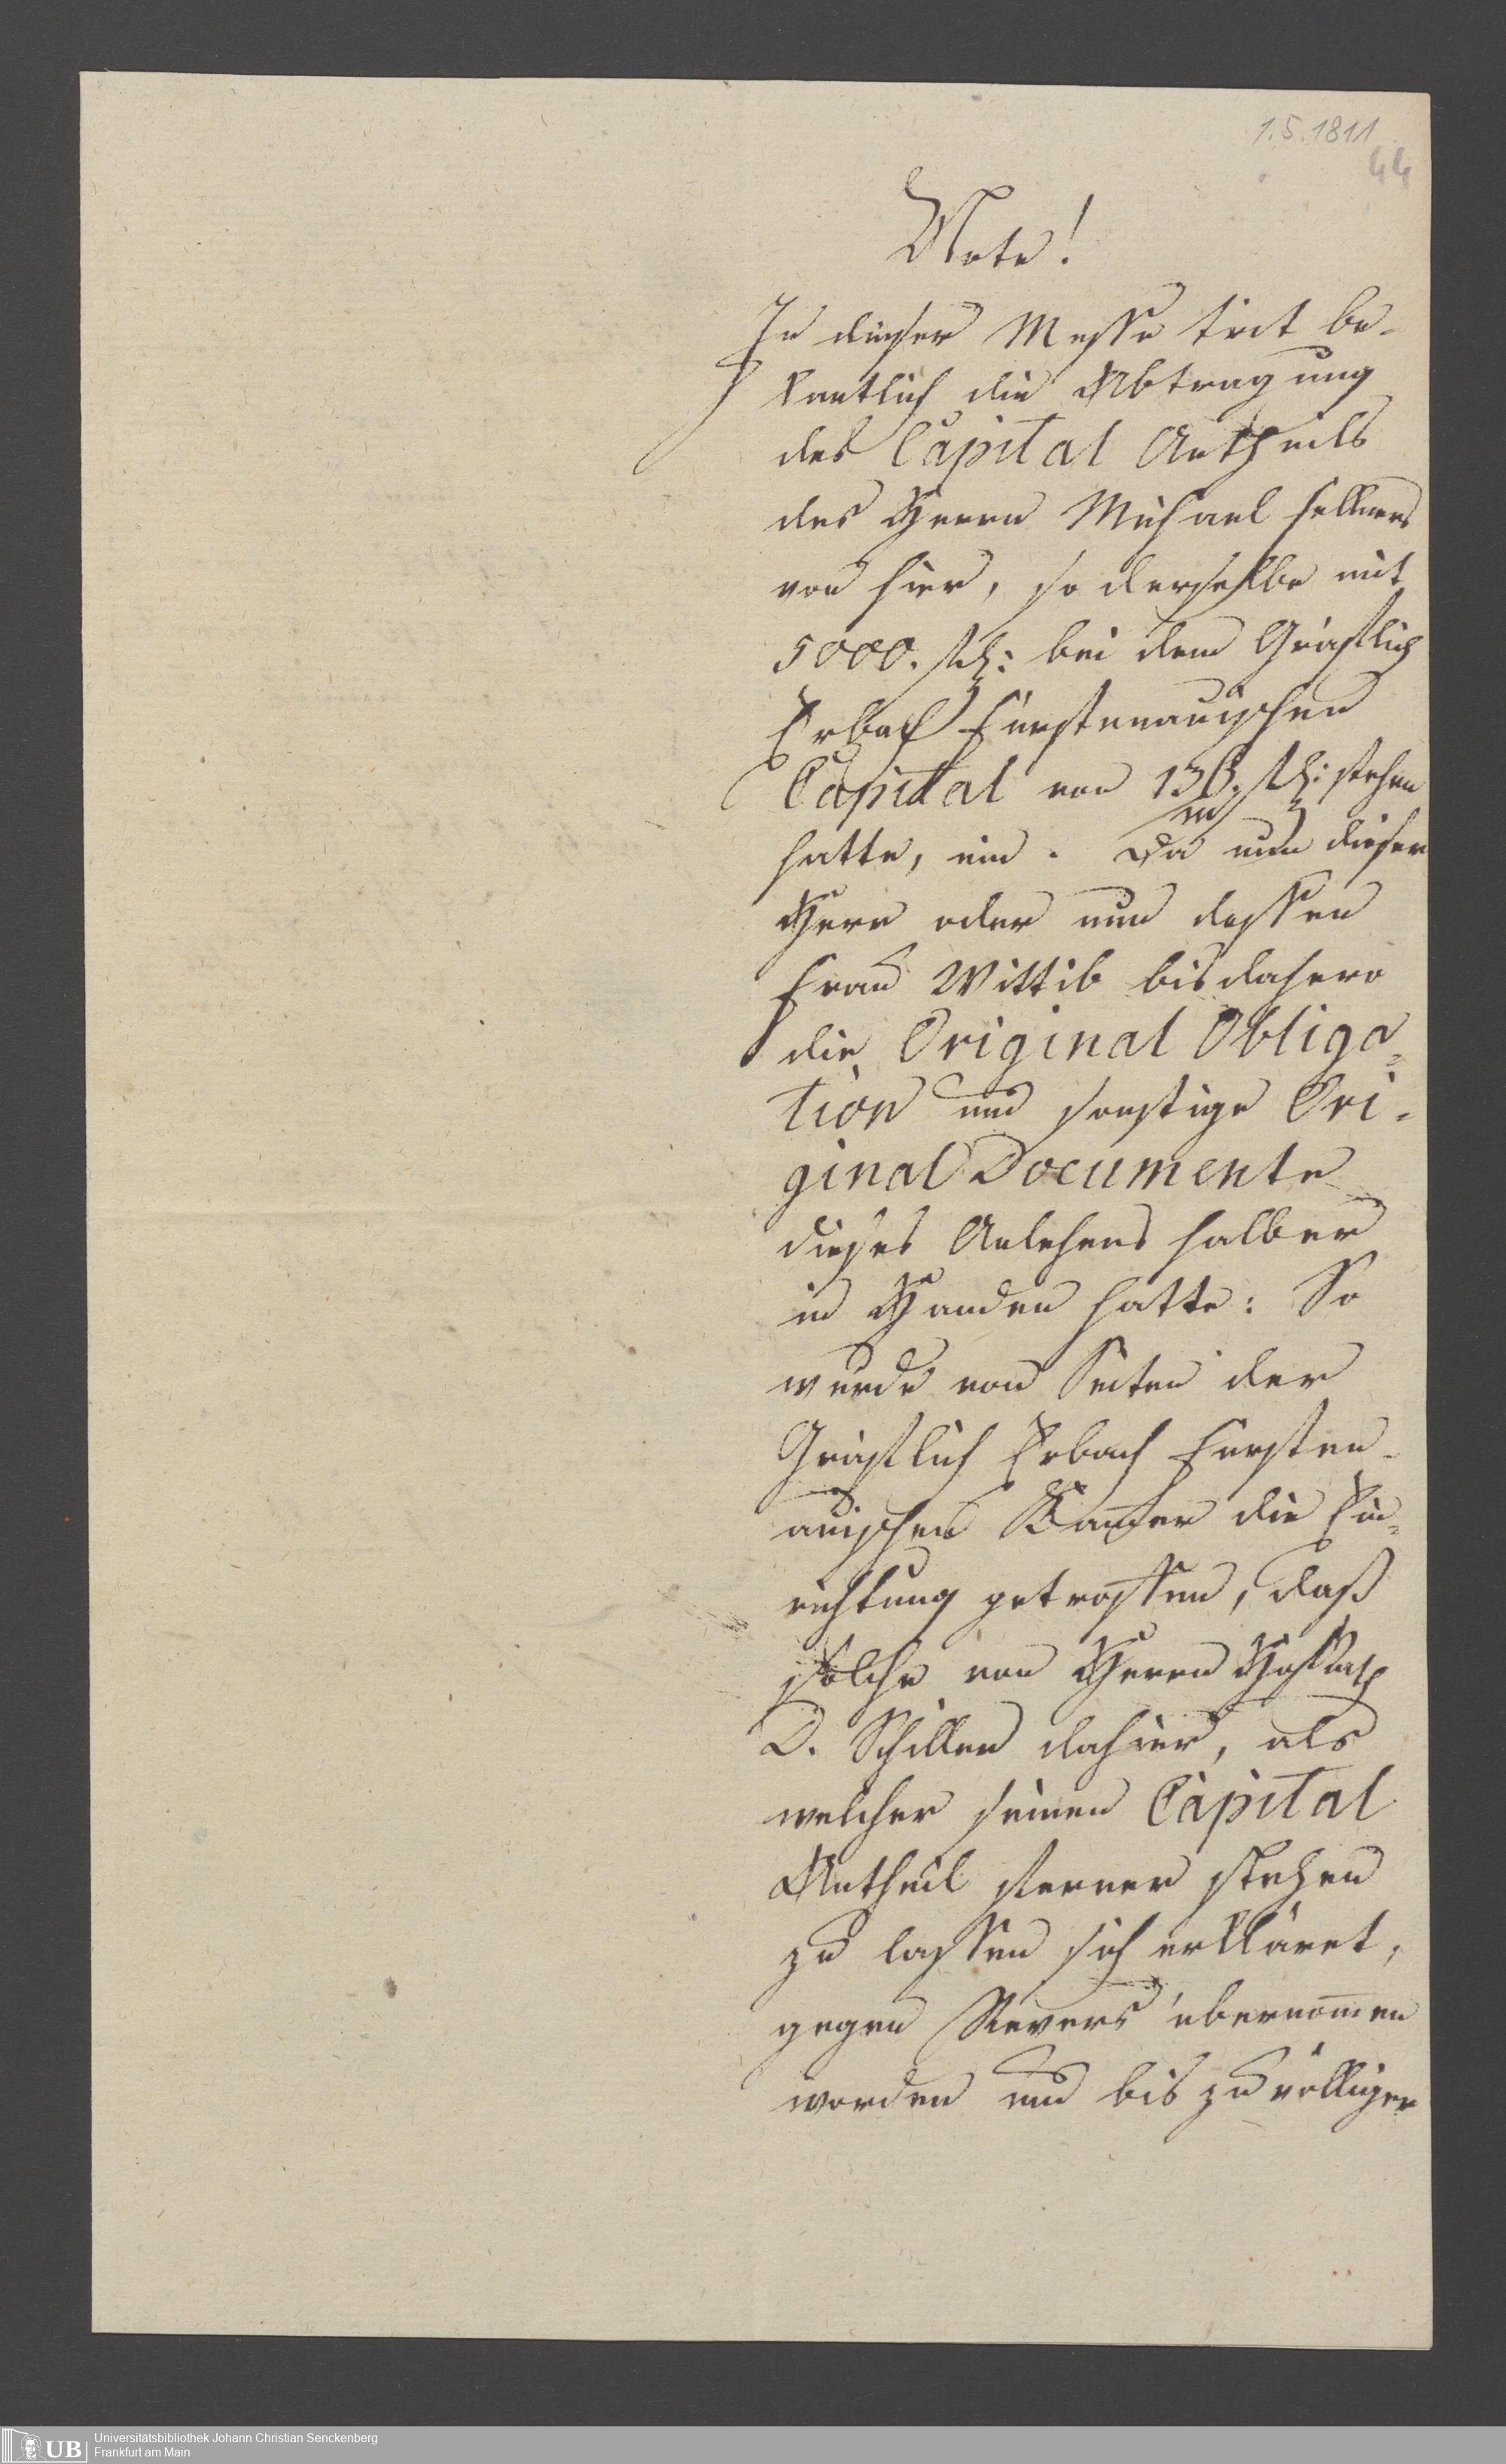 1.5.1811
44
Note!
In dieser Messe trit be-
kantlich die Abtragung
des Capital Antheils
des Herrn Michael
von hier, so derselbe mit
5000. fl: bei dem Gräflich
Erbach Fürstenauischen
Capital von fl: stehen
hatte, ein. Da nun dieser
Herr oder nun dessen
Frau Wittib bisdahero
die Original Obliga-
tion und sonstige Ori-
ginal Documente
dieses Anlehens halber
in Handen hatte: So
wurde von Seiten der
Gräflich Erbach Fürsten-
auischen Kam̅er die Ein-
richtung getroffen, daß
solche von Herrn HofRath
D. dahier, als
welcher seinen Capital
Antheil ferner stehen
zu lassen sich erkläret,
gegen Revers übernom̅en
worden und bis zu völliger
UB
Universitätsbibliothek Johann Christian Senckenberg
Frankfurt am Main